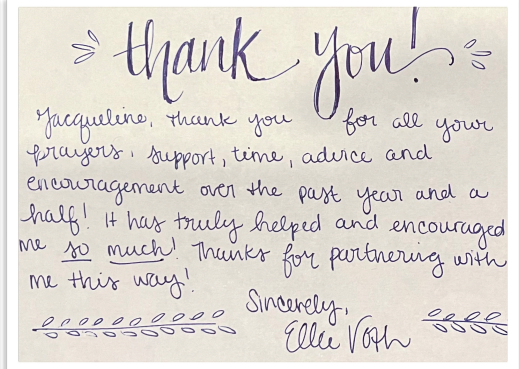 thank you!
Jacqueline, thank you for all your
prayers, support, time, advice and
encouragement over the past year and a
half! It has truly helped and encouraged
me so much! Thanks for partnering with
me this way!
Sincerely,
Ellie Voth